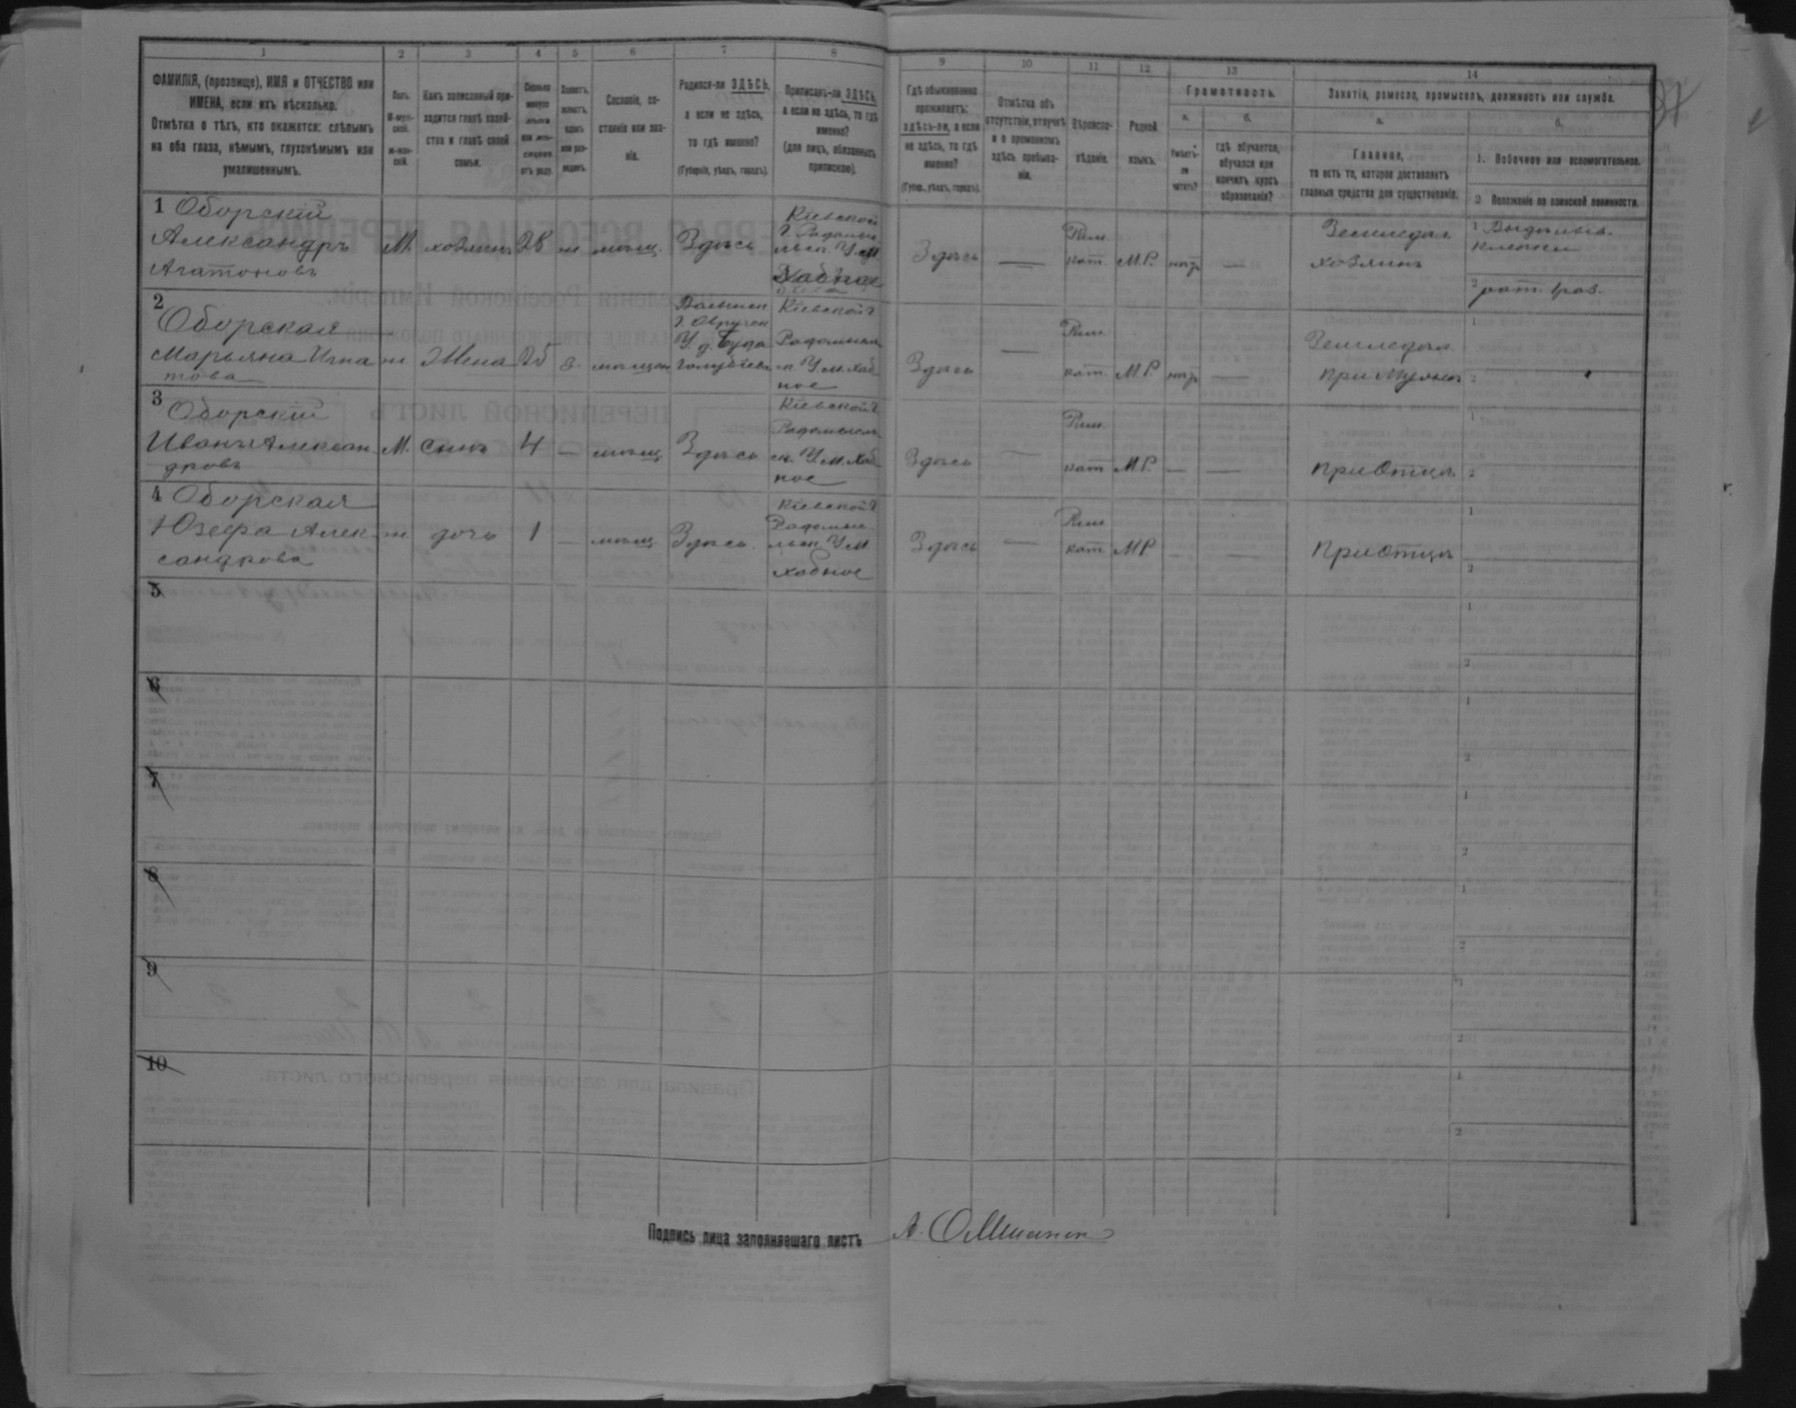 1 2 3 4 5 6 7 8 9 10 11 12 13 14
ФАМИЛІЯ, (прозвище), ИМЯ и ОТЧЕСТВО или
ИМЕНА, если ихъ нѣсколько.
Отмѣтка о тѣхъ, кто окажется: слѣпымъ
на оба глаза, нѣмымъ, глухонѣмымъ или
умалишеннымъ.
Полъ.
М-муж-
ской.
Ж-жен-
скій.
Какъ записанный при-
ходится главѣ хозяй-
ства и главѣ своей
семьи.
Сколько
минуло
лѣтъ
или мѣ-
сяцевъ
отъ роду.
Холостъ,
женатъ,
вдовъ
или раз-
веденъ.
Сословіе, со-
стояніе или зва-
ніе.
Родился-ли ЗДѢСЬ,
а если не здѣсь,
то гдѣ именно?
(Губернія, уѣздъ, городъ).
Приписанъ-ли ЗДѢСЬ,
а если не здѣсь, то гдѣ
именно?
(для лицъ, обязанныхъ
припискою).
Гдѣ обыкновенно
проживаетъ:
здѣсь-ли, а если
не здѣсь, то гдѣ
именно?
(Губер., уѣздъ, городъ).
Отмѣтка объ
отсутствіи, отлучкѣ
и о временномъ
здѣсь пребыва-
ніи.
Вѣроиспо-
вѣданіе.
Родной
языкъ.
Грамотность.
а.
Умѣетъ-
ли
читать?
б.
гдѣ обучается,
обучался или
кончилъ курсъ
образованія?
Занятіе, ремесло, промыселъ, должность или служба.
а.
Главное,
то есть то, которое доставляетъ
главныя средства для существованія.
б.
1. Побочное или вспомогательное.
2. Положеніе по воинской повинности.
1 Оборскій
Александръ
Агатоновъ
М. хозяинъ 28 ж мѣщ. Здѣсь
Кіевской
Г. Радомыс
льск. У. м
Хабное
Здѣсь — Рим. кат. М.Р. нѣтъ —
Земледѣл.
хозяинъ
1
2 рат.
2
Оборская
Марьяна Игна
това
ж Жена 25 з. мѣщан
Волынск
Г. Овручск
У. д. Буда
Голубіевка
Кіевской Г
Радомысль
ск У. м. Хаб
ное
Здѣсь — Рим. кат. М.Р. нѣтъ —
Земледѣл.
при Мужѣ
1
2
3
Оборскій
Иванъ Алексан
дровъ
М. Сынъ 4 — мѣщ Здѣсь
Кіевской Г
Радомысль
ск. У. м. Хаб
ное
Здѣсь — Рим. кат М.Р. — —
при Отцѣ
1
2
4 Оборская
Юзефа Алек
сандрова
ж дочь 1 — мѣщ Здѣсь
Кіевской Г
Радомыс
льск У. м
Хабное
Здѣсь — Рим. кат МР — —
при Отцѣ
1
2
5
1
2
6
1
2
7
1
2
8
1
2
9
1
2
10
1
2
Подпись лица заполнявшаго листъ А.